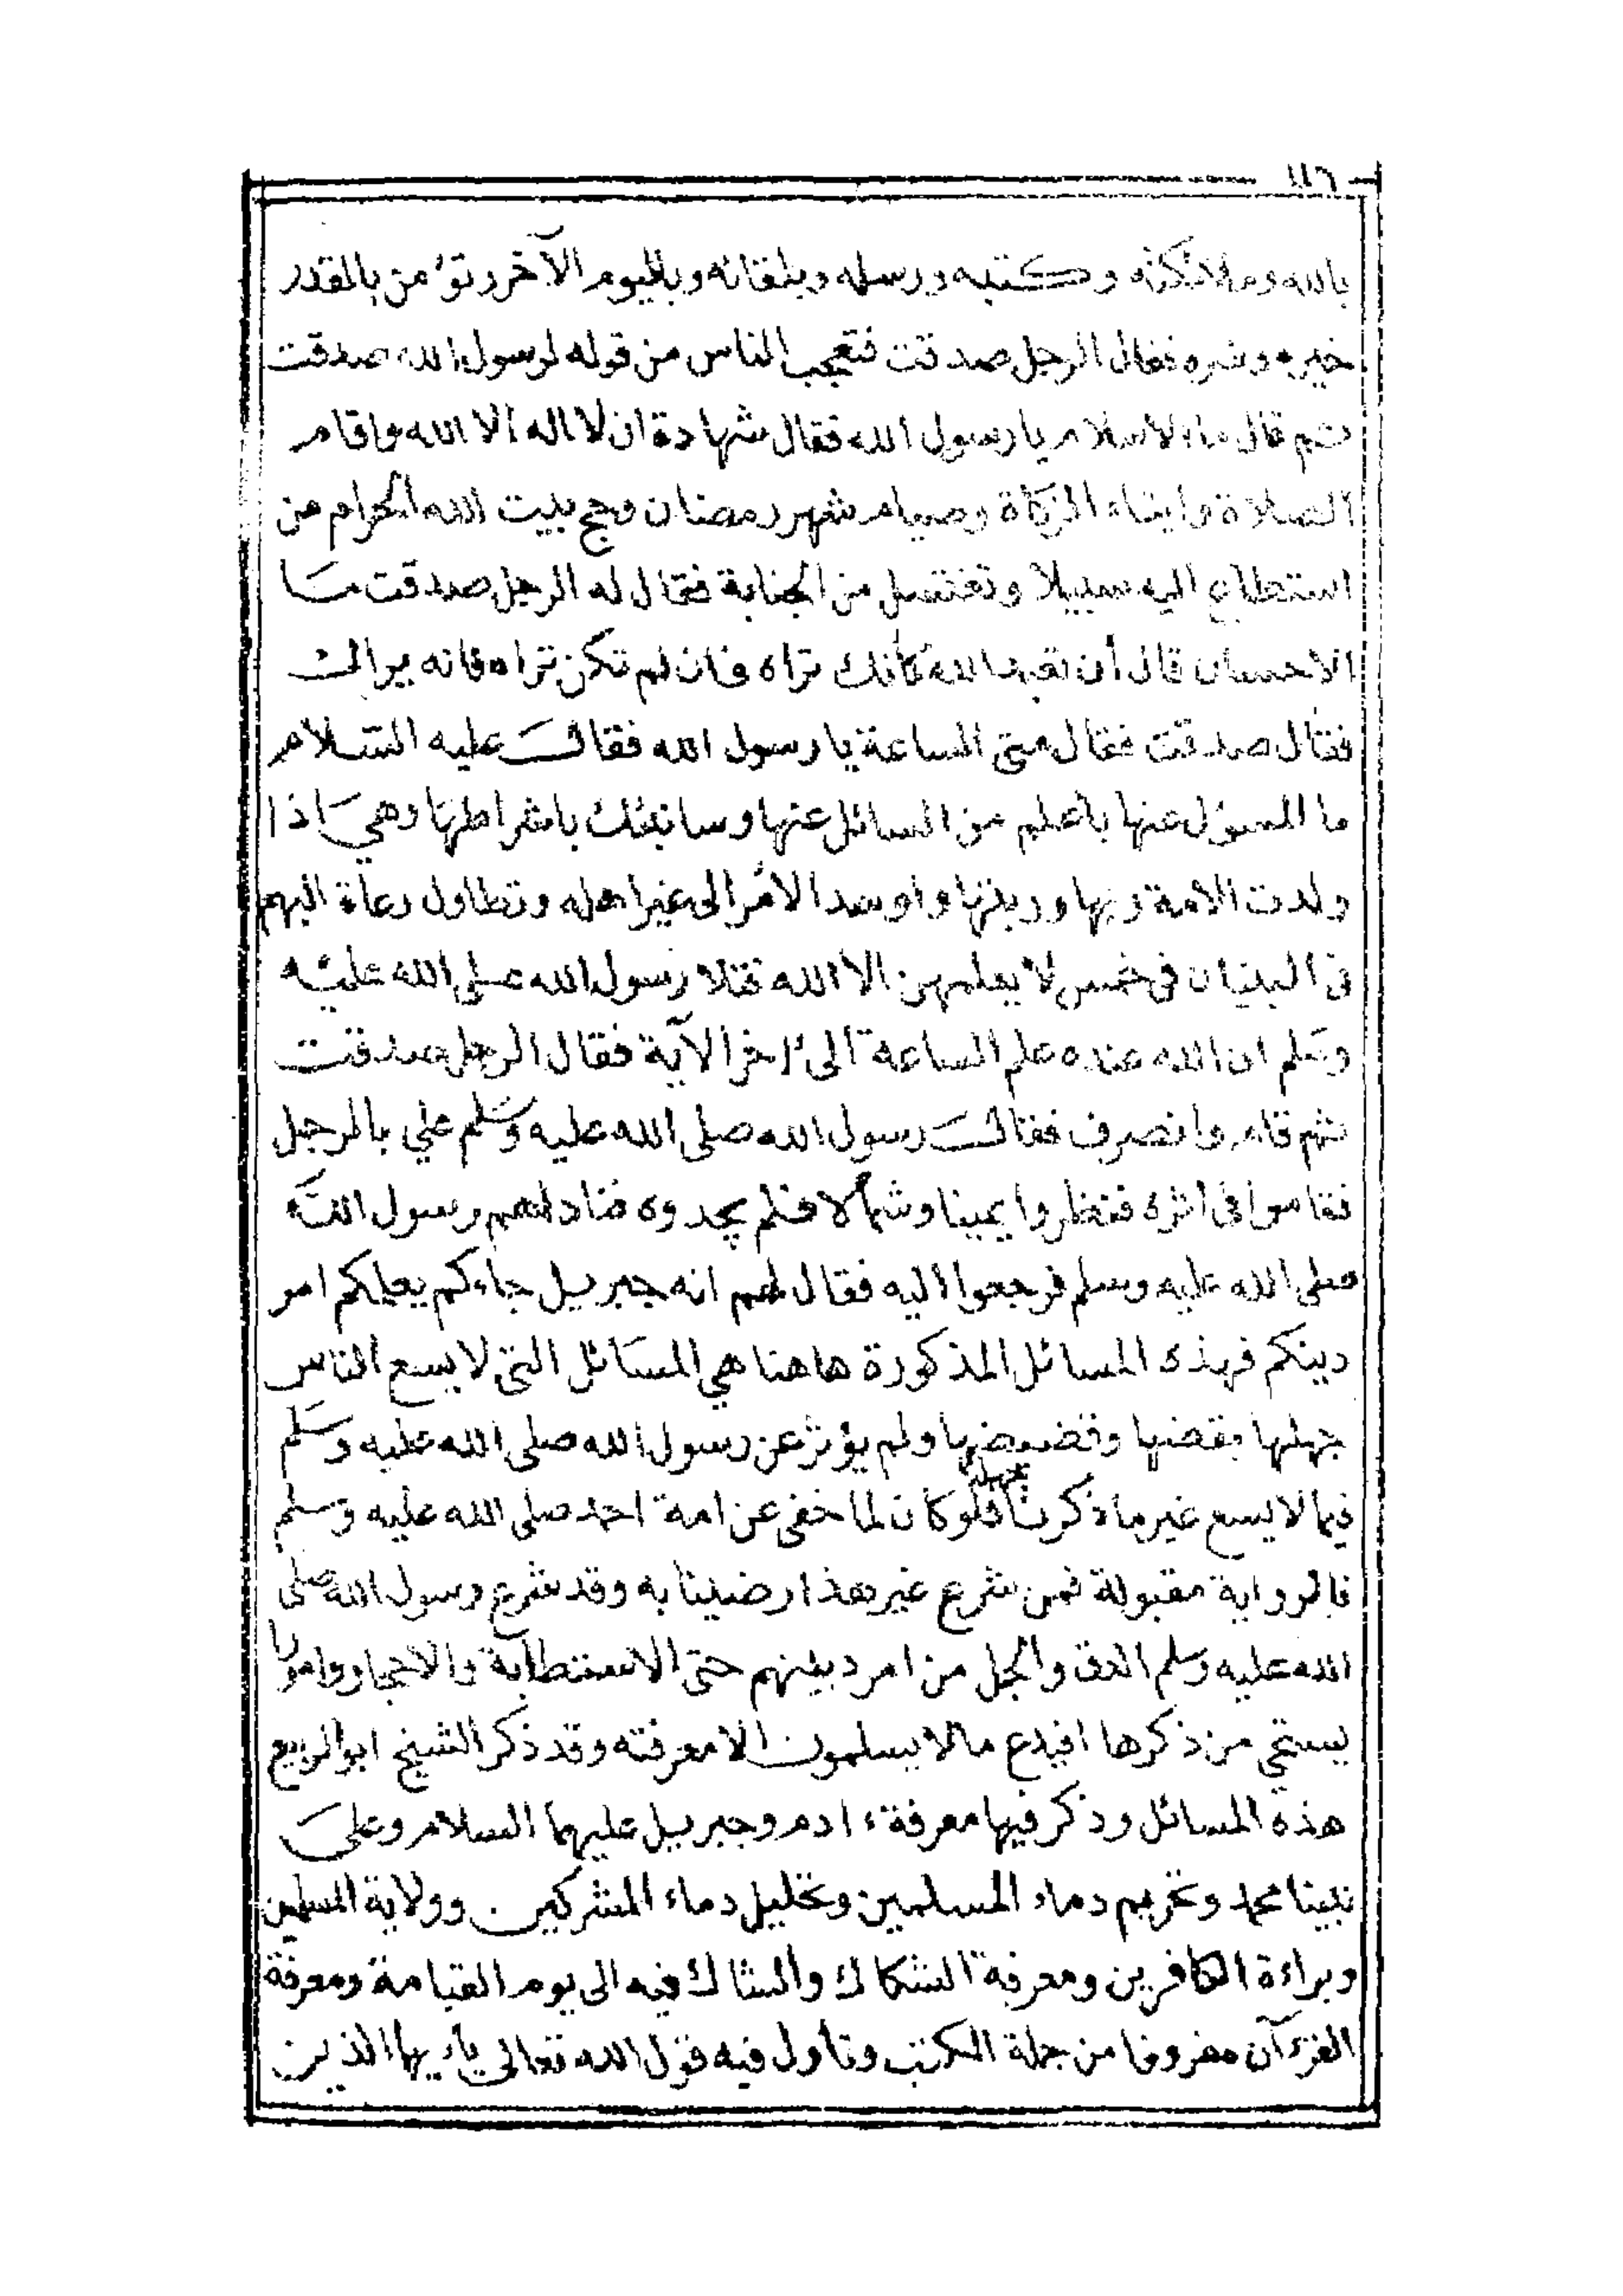 ١١٦
بالله وملائكته وكتبه ورسله وبلقائه وباليوم الآخر وتؤمن بالقدر
خيره وشره فقال الرجل صدقت فتعجب الناس من قوله لرسول الله صدقت
ثم قال ما الاسلام يا رسول الله فقال شهادة ان لا اله الا الله واقام
الصلاة وايتاء الزكاة وصيام شهر رمضان وحج بيت الله الحرام من
استطاع اليه سبيلا وتغتسل من الجنابة فقال له الرجل صدقت ما
الاحسان قال أن تعبد الله كأنك تراه فان لم تكن تراه فانه يراك
فقال صدقت فقال متى الساعة يا رسول الله فقال عليه السلام
ما المسؤل عنها بأعلم من السائل عنها وسانبئك باشراطها وهي اذا
ولدت الامة ربها وربتها واوسد الامر الى غير اهله وتطاول رعاة البهم
في البنيان في خمس لا يعلمهن الا الله فتلا رسول الله صلى الله عليه
وسلم ان الله عنده علم الساعة الى ءاخر الآية فقال الرجل صدقت
ثم قام وانصرف فقال رسول الله صلى الله عليه وسلم علي بالرجل
فقاموا في اثره فنظروا يمينا وشمالا فلم يجدوه فناداهم رسول الله
صلى الله عليه وسلم فرجعوا اليه فقال لهم انه جبريل جاءكم يعلمكم امر
دينكم فهذه المسائل المذكورة هاهنا هي المسائل التي لا يسع الناس
جهلها بقضها وقضيضها ولم يؤثر عن رسول الله صلى الله عليه وسلم
فيما لا يسع جهله غير ما ذكرنا فلو كان لما خفى عن امة احمد صلى الله عليه وسلم
فالرواية مقبولة فمن شرع غير هذا رضينا به وقد شرع رسول الله صلى
الله عليه وسلم الدق والجل من امر دينهم حتى الاستطابة والاحجار وامورا
يستحي من ذكرها افيدع ما لا يسلمون الا معرفته وقد ذكر الشيخ ابو الربيع
هذه المسائل وذكر فيها معرفة ءادم وجبريل عليهما السلام وعلى
نبينا محمد وتحريم دماء المسلمين وتحليل دماء المشركين وولاية المسلمين
وبراءة الكافرين ومعرفة الشكاك والشاك فيه الى يوم القيامة ومعرفة
القرءآن مفروغا من جملة الكتب وتأول فيه قول الله تعالى يأيها الذين